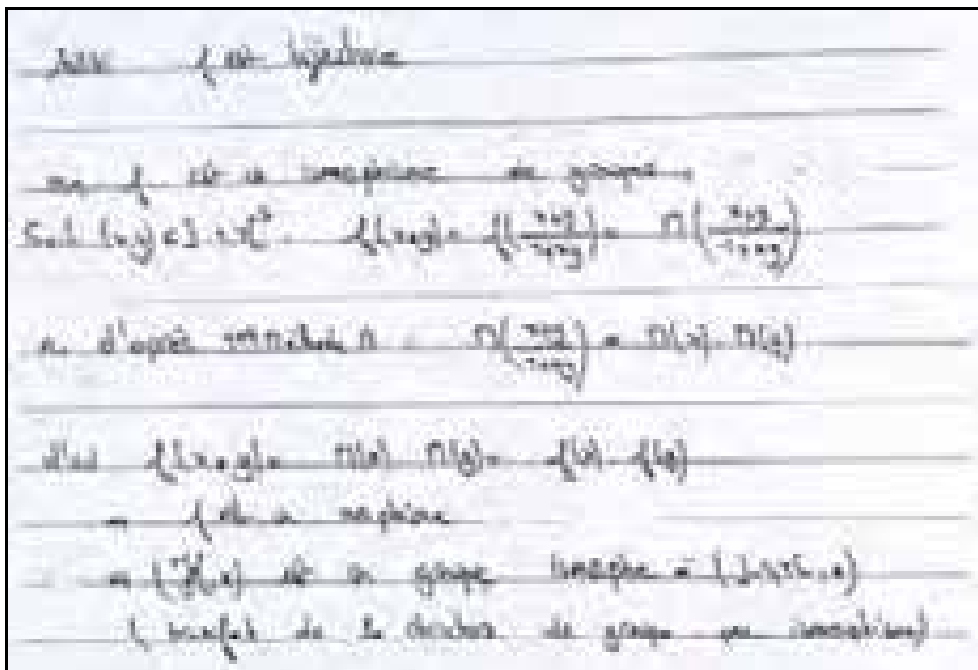 f est bijective
f est un isomorphisme de groupe.
Soit (x,y) ∈ ]-1,1[² f(x*y) = f(\frac{x+y}{1+xy}) = M(\frac{x+y}{1+xy})
d'après M(\frac{x+y}{1+xy}) = M(x) . M(y)
d'où f(x*y) = M(x) M(y) = f(x) . f(y)
→ f est un morphisme
est un groupe isomorphe à (]-1,1[, *)
( transfert de la structure de groupe par